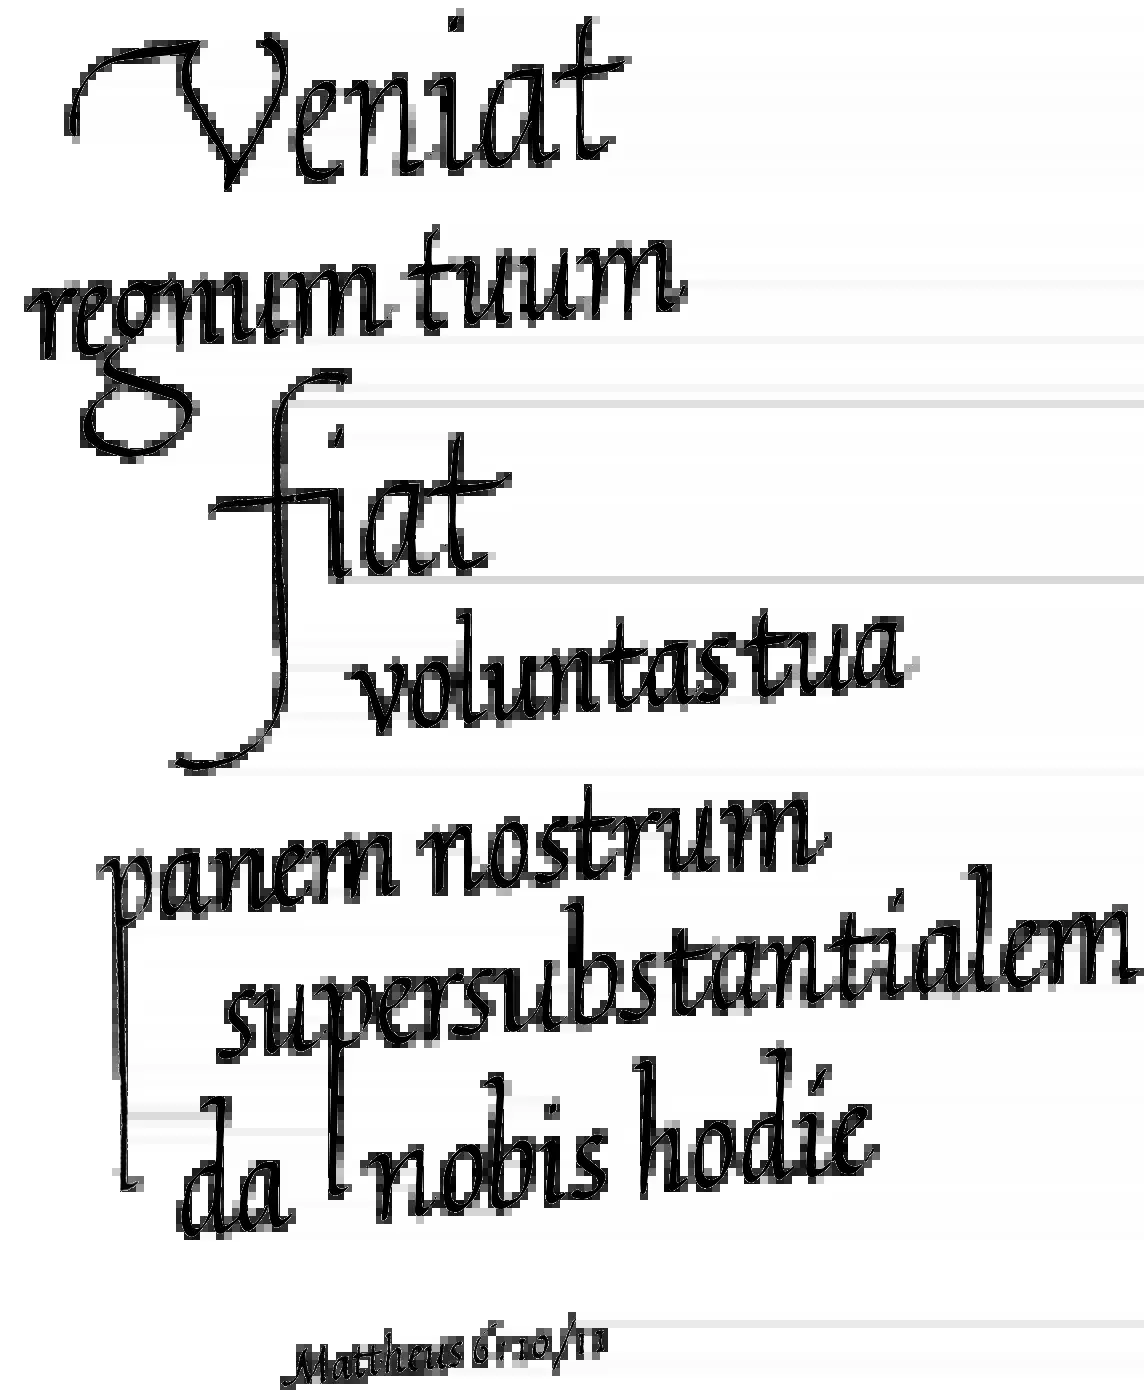 Veniat
regnum tuum
fiat
voluntas tua
panem nostrum
supersubstantialem
da nobis hodie
Mattheus 6, 10/11